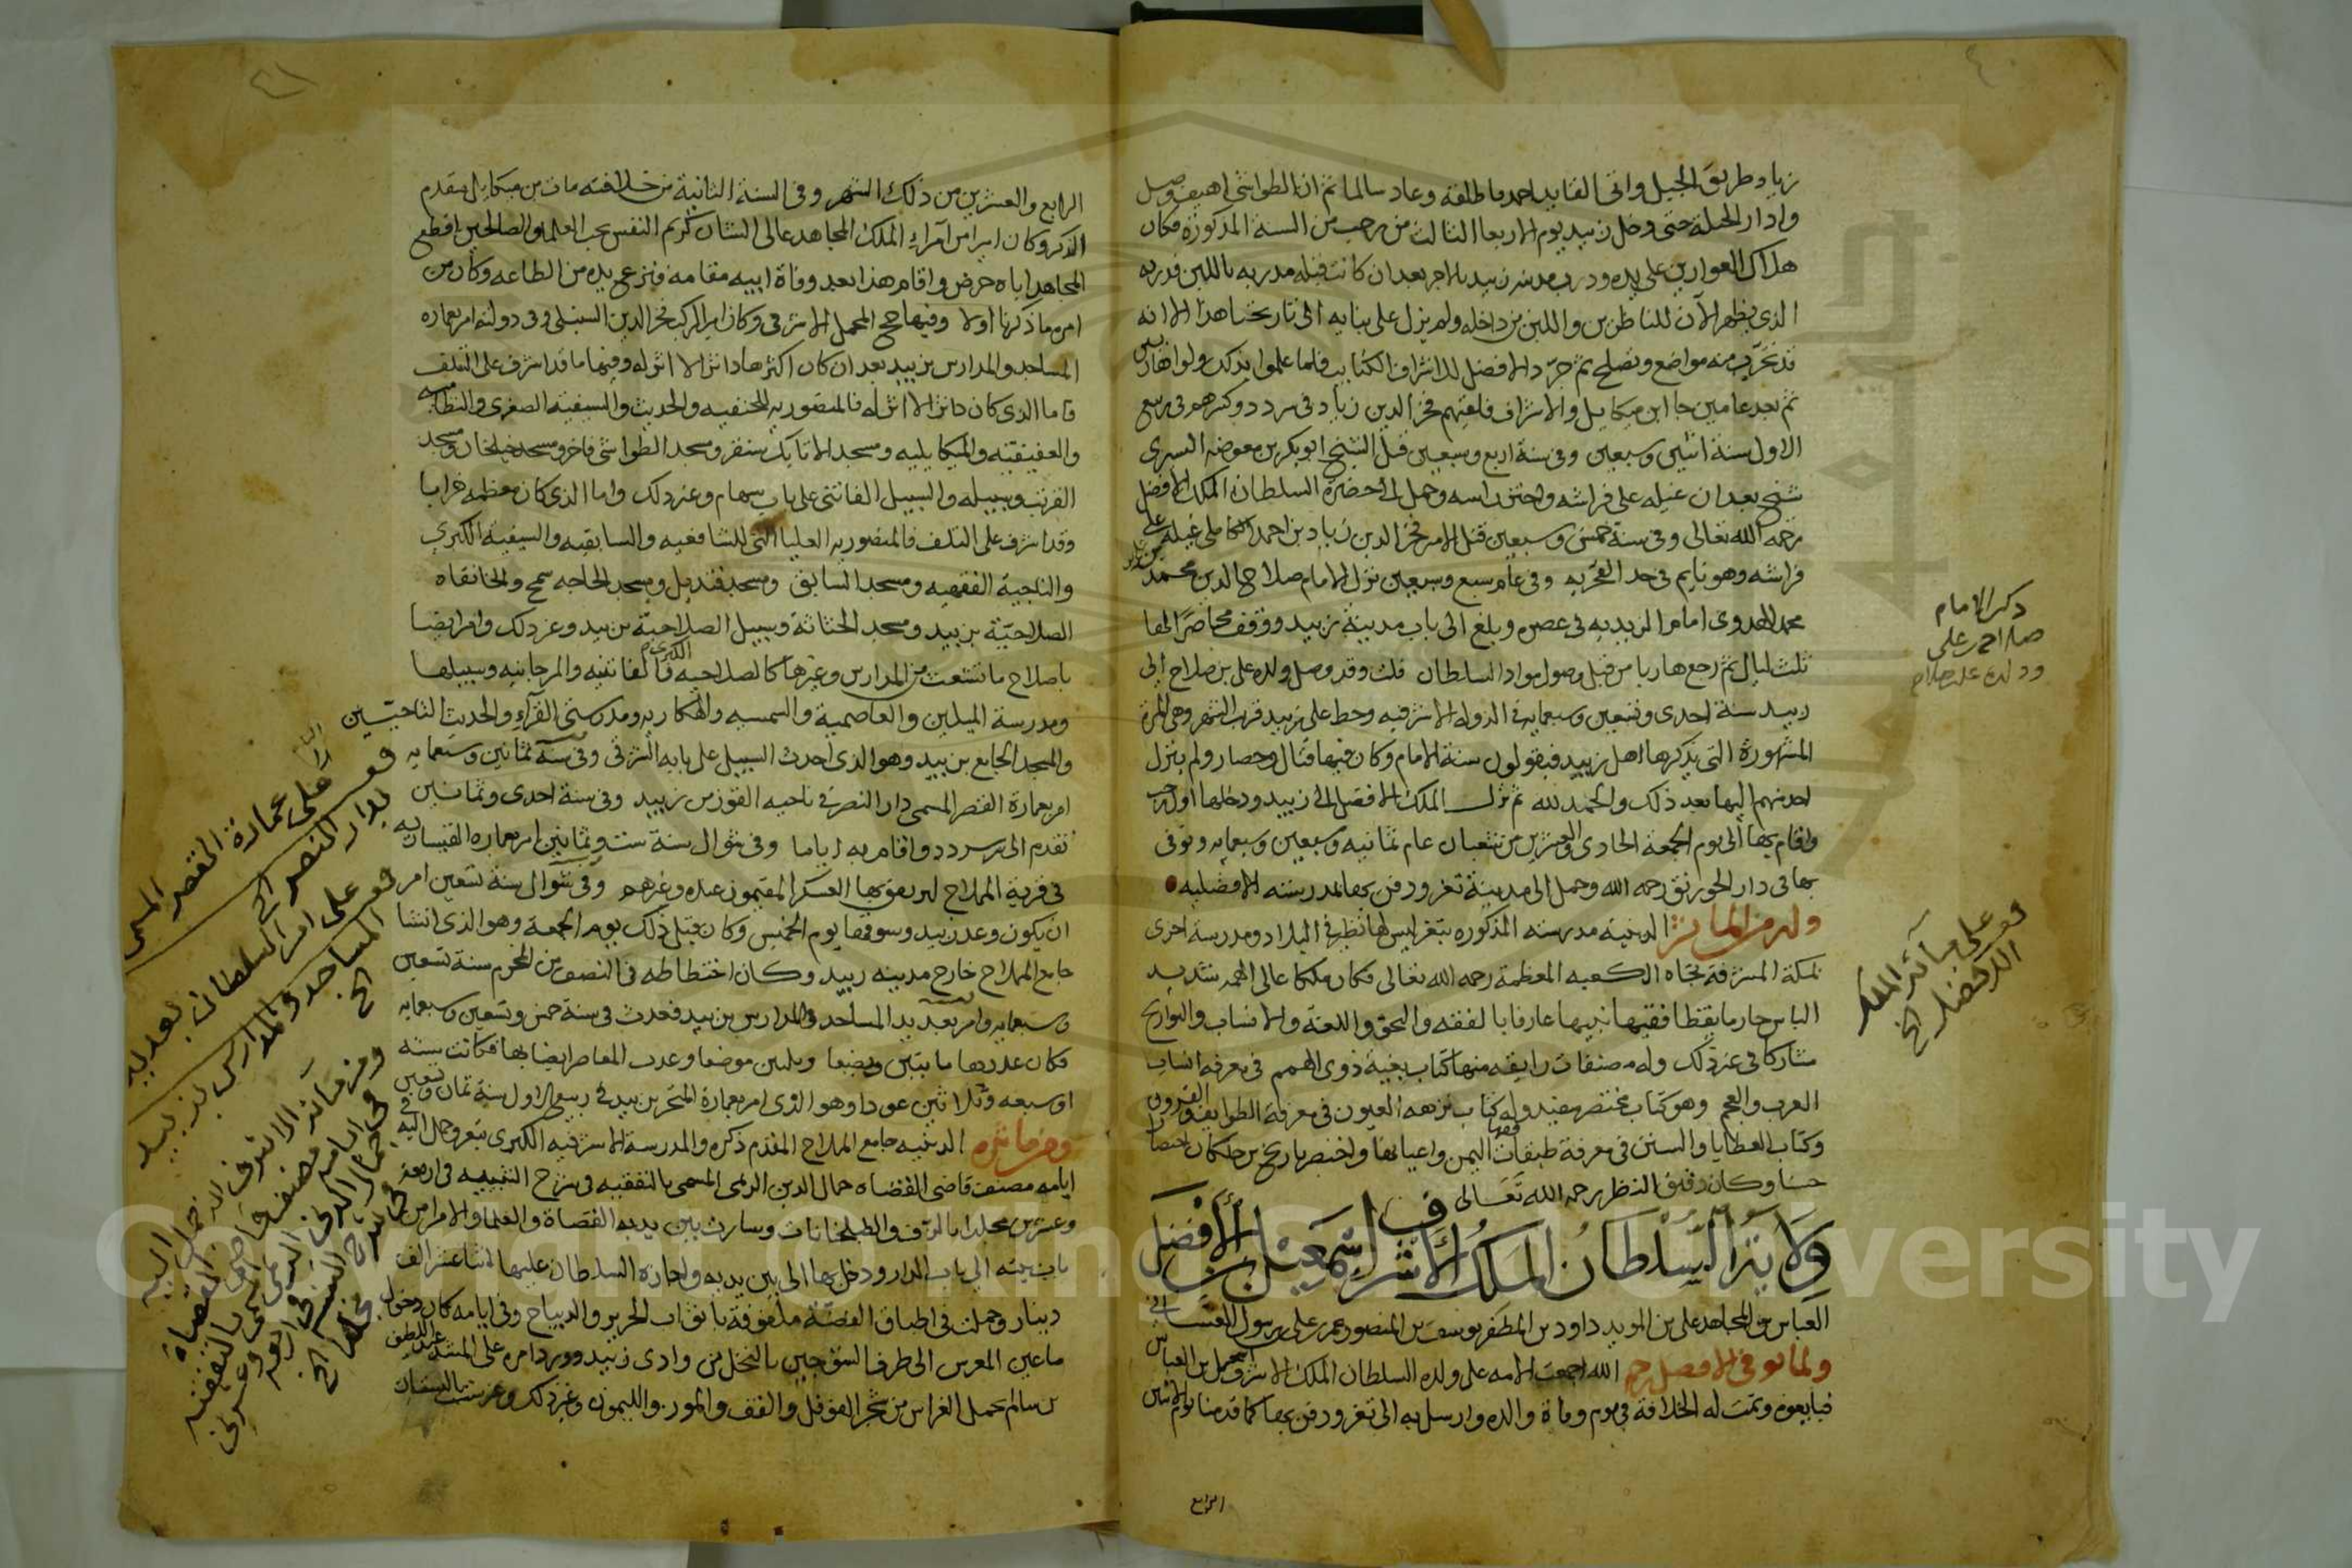 زياد طريق الجبل واتى القايد احمد فاطلقه وعاد سالما ثم ان الطواشي اهيف وصل
وادار الحيلة حتى دخل زبيد يوم الاربعا الثالث من رجب من السنة المذكورة فكان
هلاك العوارين على يده ودرب مدينة زبيد بالاجر بعد ان كانت قبله مدربه باللبن فدربه
الذي يظهر الآن للناظرين واللبن من داخله ولم يزل على بنايه الى تاريخنا هذا الا انه
قد تخرب منه مواضع وتصلح ثم جرد الافضل للاشراف الكتايب فلما علموا بذلك ولوا هاربين
ثم بعد عامين جا ابن ميكاييل والاشراف فلقيهم فخر الدين زياد في سردد وكسرهم في ربيع
الاول سنة اثنين وسبعين وفي سنة اربع وسبعين قتل الشيخ ابو بكر بن معوضه السيري
شيخ بعدان غيله على فراشه واحتز راسه وحمل الى حضرة السلطان الملك الافضل
رحمه الله تعالى وفي سنة خمس وسبعين قتل الامير فخر الدين زياد بن احمد الكاملي غيله على
فراشه وهو نايم في حد القحريه وفي عام سبع وسبعين نزل الامام صلاح الدين محمد بن علي بن
محمد الهدوي امام الزيديه في عصره وبلغ الى باب مدينة زبيد ووقف محاصرا لها
ثلث ليال ثم رجع هاربا من قبل وصول مواد السلطان قلت وقد وصل ولده علي بن صلاح الى
زبيد سنة احدى وتسعين وسبعمايه في الدوله الاشرفيه وحط على زبيد قرب الشهر وهي المرة
المشهورة التي يذكرها اهل زبيد فيقولون سنة الامام وكان فيها قتال وحصار ولم ينزل
احد منهم اليها بعد ذلك والحمد لله ثم نزل الملك الافضل الى زبيد ودخلها اول رجب
واقام بها الى يوم الجمعة الحادي والعشرين من شعبان عام ثمانيه وسبعين وسبعمايه وتوفى
بها في دار الخورنق رحمه الله وحمل الى مدينة تعز ودفن بها بمدرسته الافضليه
وله من المآثر الدينيه مدرسته المذكوره بتعز ليس لها نظير في البلاد ومدرسة اخرى
بمكة المشرفة تجاه الكعبه المعظمة رحمه الله تعالى فكان ملكا عالي الهمه شديد
الباس حازما يقظا فقيها نبيها عارفا بالفقه والنحو واللغة والانساب والتواريخ
مشاركا في غير ذلك وله مصنفات رايقه منها كتاب بغية ذوي الهمم في معرفة انساب
العرب والعجم وهو كتاب مختصر مفيد وله كتاب نزهه العيون في معرفة الطوايف والقرون
وكتاب العطايا والسنن في معرفة طبقات فقها اليمن واعيانها واختصر تاريخ بن خلكان اختصارا
حسنا وكان دقيق النظر رحمه الله تعالى
ولاية السلطان الملك الاشرف اسمعيل بن الافضل
العباس بن المجاهد علي بن المويد داود بن المظفر يوسف بن المنصور عمر بن علي بن رسول الغساني
ولما توفي الافضل رحمه الله اجمعت الامه على ولده السلطان الملك الاشرف اسمعيل بن العباس
فبايعوه وتمت له الخلافة في يوم وفاة والده وارسل به الى تعز ودفن بها كما قدمنا يوم الاثنين
الرابع
ذكر الامام
صلاح بن علي
وولده علي بن صلاح
قف على مآثر الملك
الافضل الخ
الرابع والعشرين من ذلك الشهر وفي السنة الثانية من خلافته مات بن ميكاييل متقدم
الذكر وكان اميرا من امراء الملك المجاهد عالي الشان كريم النفس يحب العلما والصالحين اقطع
المجاهد اباه حرض واقام هذا بعد وفاة ابيه مقامه فنزع يده من الطاعه وكان من
امره ما ذكرنا اولا وفيها حج المحمل الاشرفي وكان امير الركب فخر الدين السنبلي وفي دولته امر بعماره
المساجد والمدارس بزبيد بعد ان كان اكثرها داثرا لا اثر له وفيها ما قد اشرف على التلف
فاما الذي كان داثرا لا اثر له فالمنصوريه للحنفيه والحديث والسيفيه الصغرى والنظاميه
والعفيفيه والميكاييليه ومسجد الاتابك سنقر ومسجد الطواشي فاخر ومسجد خليخان ومسجد
القرتب وسبيله والسبيل الفاتني على باب سهام وغير ذلك واما الذي كان معظمه خرابا
وقد اشرف على التلف فالمنصوريه العليا التي للشافعيه والسابقيه والسيفية الكبرى
والتاجية الفقهيه ومسجد السابق ومسجد قنديل ومسجد الحاجه سمح والخانقاه
الصلاحية بزبيد ومسجد الخثاثة وسبيل الصلاحية بزبيد وغير ذلك وامر ايضا
باصلاح ما تشعث من المدارس وغيرها كالصلاحيه الكبرى والفاتنيه والمرجانيه وسبيلها
ومدرسة الميلين والعاصمية والشمسيه والهكاريه ومدرستي القرآء والحديث التاجيتين
والمسجد الجامع بزبيد وهو الذي احدث السبيل على بابه الشرقي وفي سنة ثمانين وسبعمايه
امر بعمارة القصر المسمى دار النصر في ناحيه القوز من زبيد وفي سنة احدى وثمانين
تقدم الى سردد واقام به اياما وفي شوال سنة ست وثمانين امر بعماره القيساريه
في قرية المملاح ليرتفق بها العسكر المقيمون عنده وغيرهم وفي شوال سنة تسعين امر
ان يكون وعد زبيد وسوقها يوم الخميس وكان قبل ذلك يوم الجمعة وهو الذي انشا
جامع المملاح خارج مدينه زبيد وكان اختطاطه في النصف من المحرم سنة تسعين
وسبعمايه وامر بعديد المساجد والمدارس بزبيد فعدت في سنة خمس وتسعين وسبعمايه
فكان عددها مايتين وبضعا وثلثين موضعا وعدت المعاصر ايضا بها فكانت سته
او سبعه وثلاثين عودا وهو الذي امر بعمارة المتجر بزبيد في ربيع الاول سنة ثمان وتسعين
ومن مآثره الدينيه جامع المملاح المقدم ذكره والمدرسة الاشرفيه الكبرى بتعز وحمل اليه في
ايامه مصنف قاضي القضاه جمال الدين الريمي المسمى بالتفقيه في شرح التنبيه في اربعة
وعشرين مجلدا بالزف والطبلخانات وسارت بين يديه القضاة والعلما والامرا من
باب بيته الى باب الدار ودخل بها الى بين يديه واجازه السلطان عليها اثنا عشر الف
دينار وحملت في اطباق الفضة ملفوفة باثواب الحرير والديباج وفي ايامه كان دخول
ماعين المعرس الى طرف السوحين بالنخل من وادي زبيد وورد امره على المشد عبد اللطيف
بن سالم بحمل الغراس من شجر الفوفل والقف والموز والليمون وغير ذلك وغرست بالبستان
قف على عمارة القصر المسمى
بدار النصر الخ
قف على امر السلطان بعديد
المساجد والمدارس بزبيد
الخ
ومن مآثر الاشرف انه حمل اليه
في ايامه مصنف قاضي القضاة
جمال الدين الريمي المسمى بالتفقيه
في شرح التنبيه في اربعة وعشرين
مجلدا الخ
Copyright © King Saud University